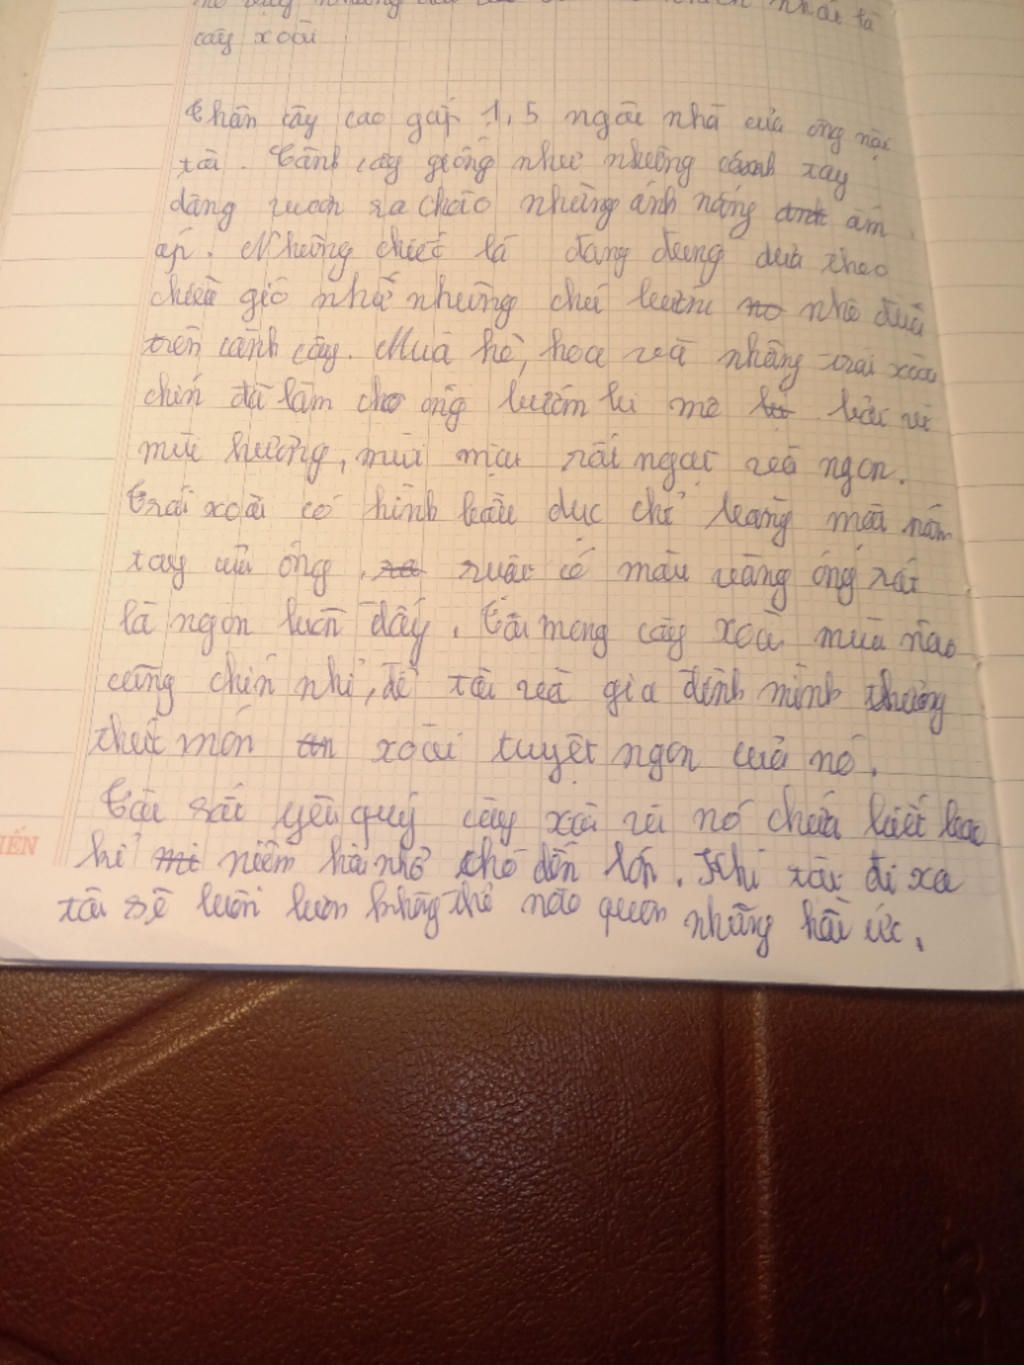 cây xoài
Thân cây cao gấp 1,5 ngôi nhà của ông nội
tôi. Cành cây giống như những cánh tay
dang vươn ra chào những ánh nắng ấm
áp. Những chiếc lá đang đung đưa theo
chiều gió như những chú bướm nhỏ đuă
trên cành cây. Mùa hè, hoa và những trái xoài
chín đã làm cho ong bướm bị mê bởi vì
mùi hương, mùi mật rất ngọt và ngon.
Trái xoài có hình bầu dục chỉ bằng một nắm
tay của ông, ruột có màu vàng óng rất
là ngon luôn đấy. Tôi mong cây xoài mùa nào
cũng chín nhỉ, để tôi và gia đình mình thưởng
thức món xoài tuyệt ngon của nó.
Tôi rất yêu quý cây xoài vì nó chứa biết bao
kỉ niềm hồi nhỏ cho đến lớn. Khi tôi đi xa
tôi sẽ luôn luôn không thể nào quên những hồi ức.
ẾN